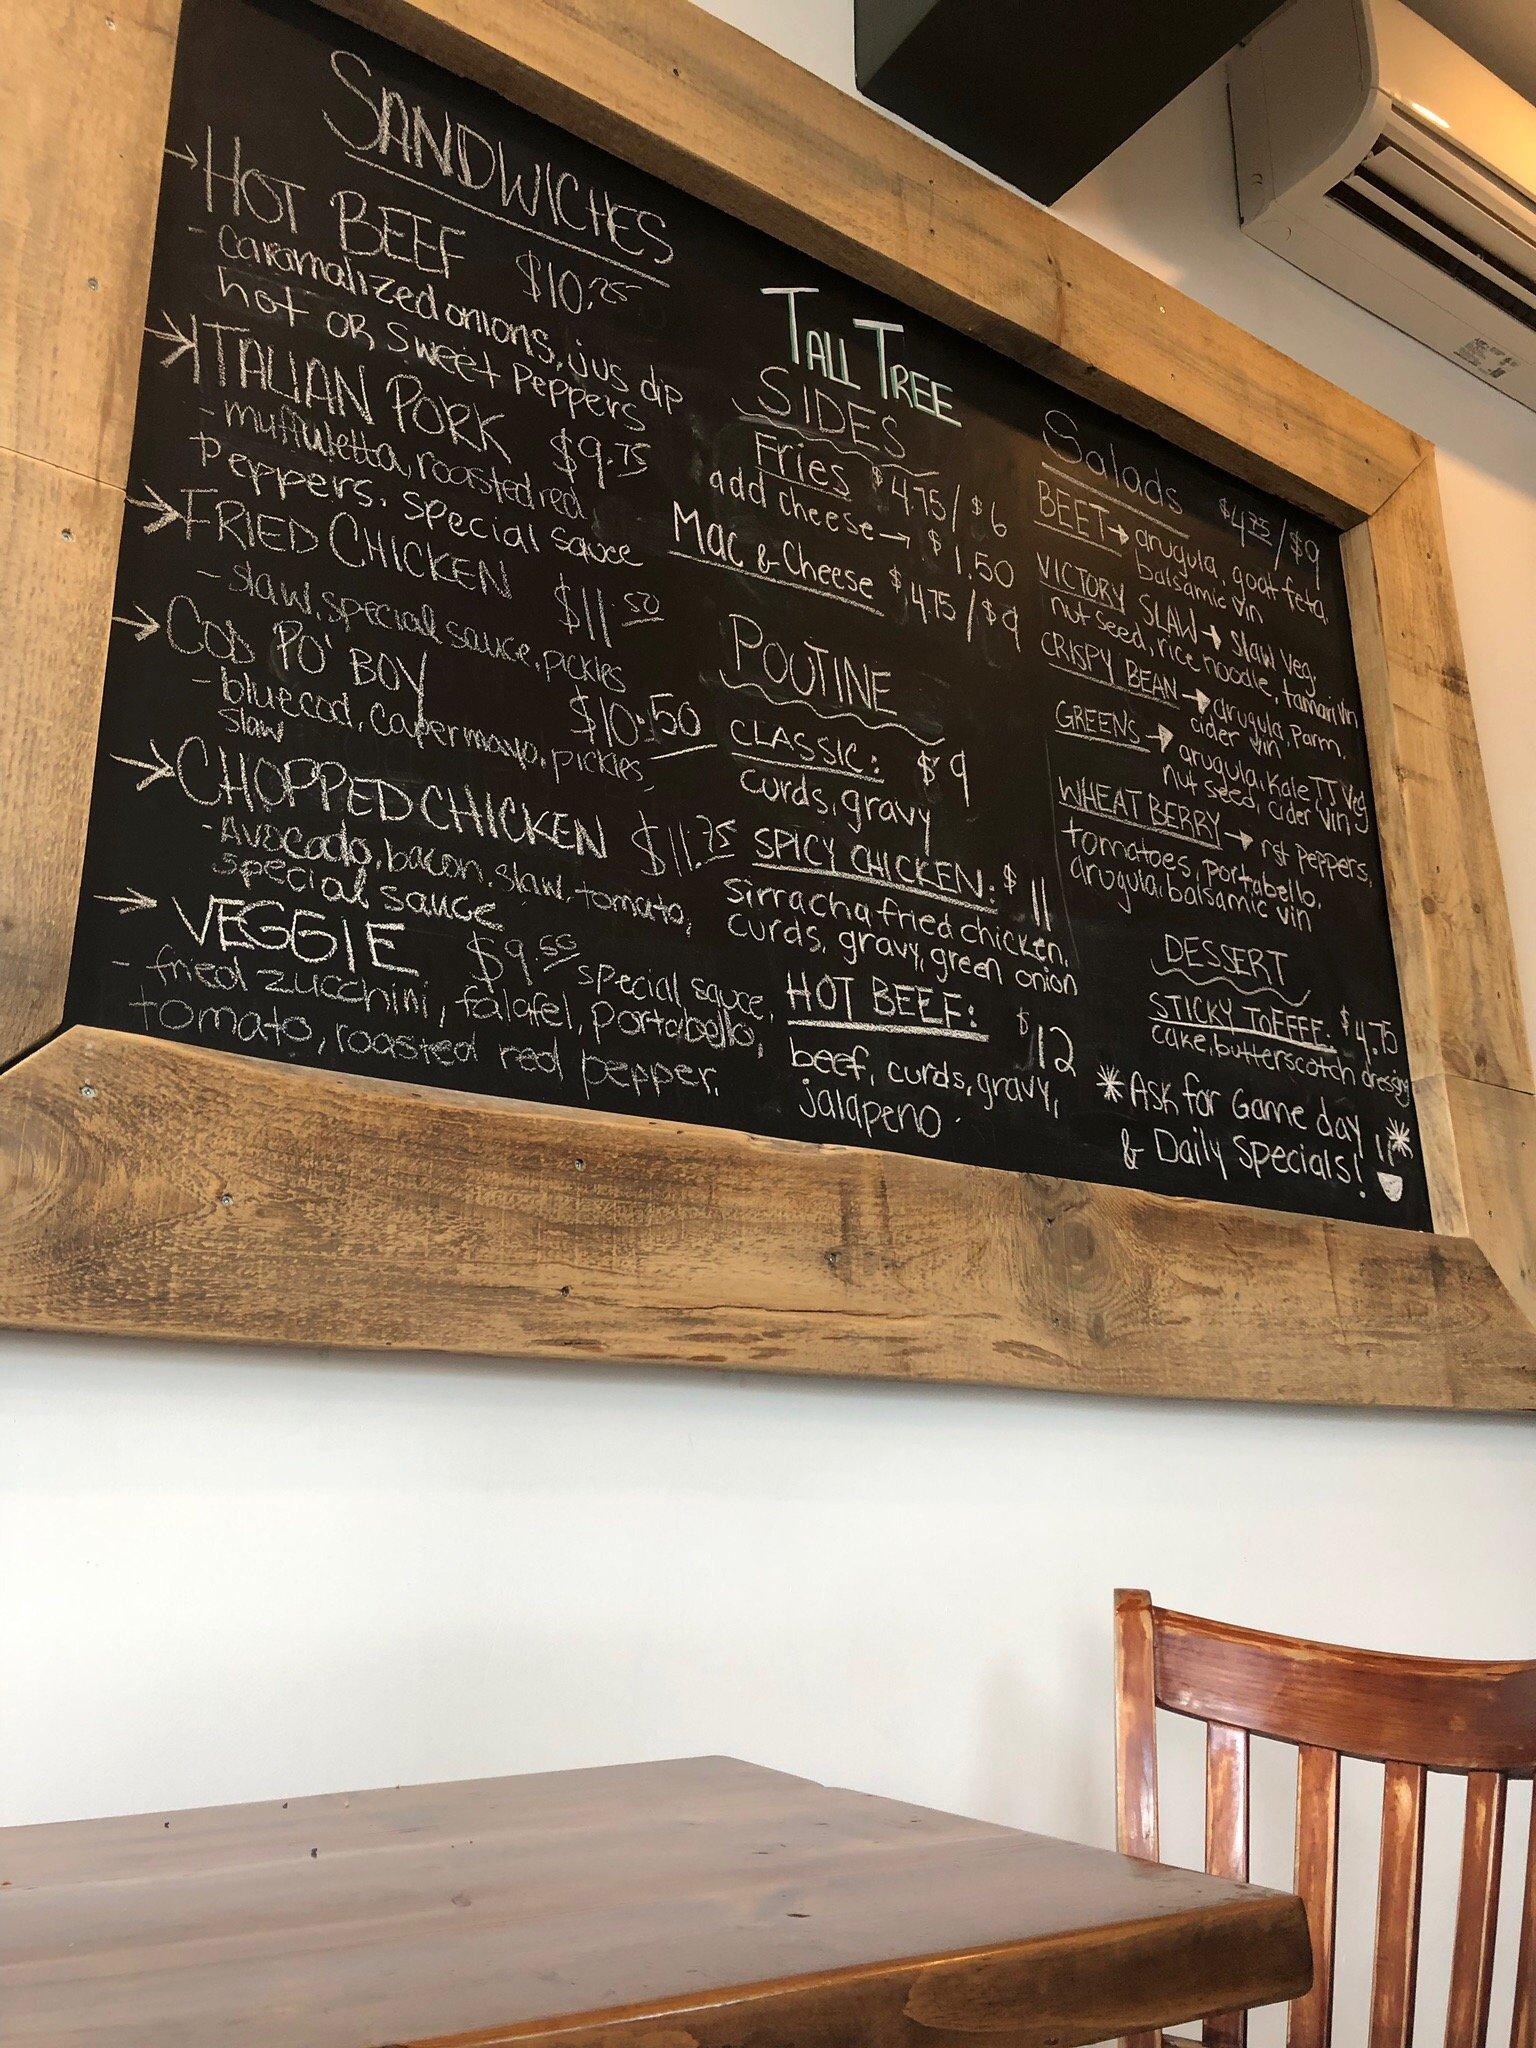 SANDWICHES
HOT BEEF $10.25
- caramalized onions, jus dip
hot OR Sweet Peppers
ITALIAN PORK $9.75
- muffuletta, roasted red
Peppers, special sauce
FRIED CHICKEN $11.50
- slaw, special sauce, pickles
COD PO' BOY $10.50
- blue cod, caper mayo, pickles,
slaw
CHOPPED CHICKEN $11.75
- Avocado, bacon, slaw, tomato,
special sauce
VEGGIE $9.50 special sauce,
- fried zucchini, falafel, portabello,
tomato, roasted red pepper,
TALL TREE
SIDES
Fries $4.75 / $6
add cheese → $1.50
Mac & Cheese $4.75 / $9
POUTINE
CLASSIC: $9
curds, gravy
SPICY CHICKEN: $11
sirracha fried chicken,
curds, gravy, green onion
HOT BEEF: $12
beef, curds, gravy,
jalapeno
Salads $4.75 / $9
BEET → arugula, goat feta,
balsamic vin
VICTORY SLAW → slaw veg,
nut seed, rice noodle, tamari vin
CRISPY BEAN → arugula, Parm,
cider vin
GREENS → arugula, Kale TT Veg
nut seed, cider vin
WHEAT BERRY → rst peppers,
tomatoes, portabello,
arugula, balsamic vin
DESSERT
STICKY TOFFEE: $4.75
cake, butterscotch dressing
* Ask for Game day *
& Daily Specials!